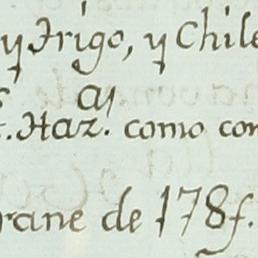 y Trigo, y Chile
Haz.ª como con
rane de 178